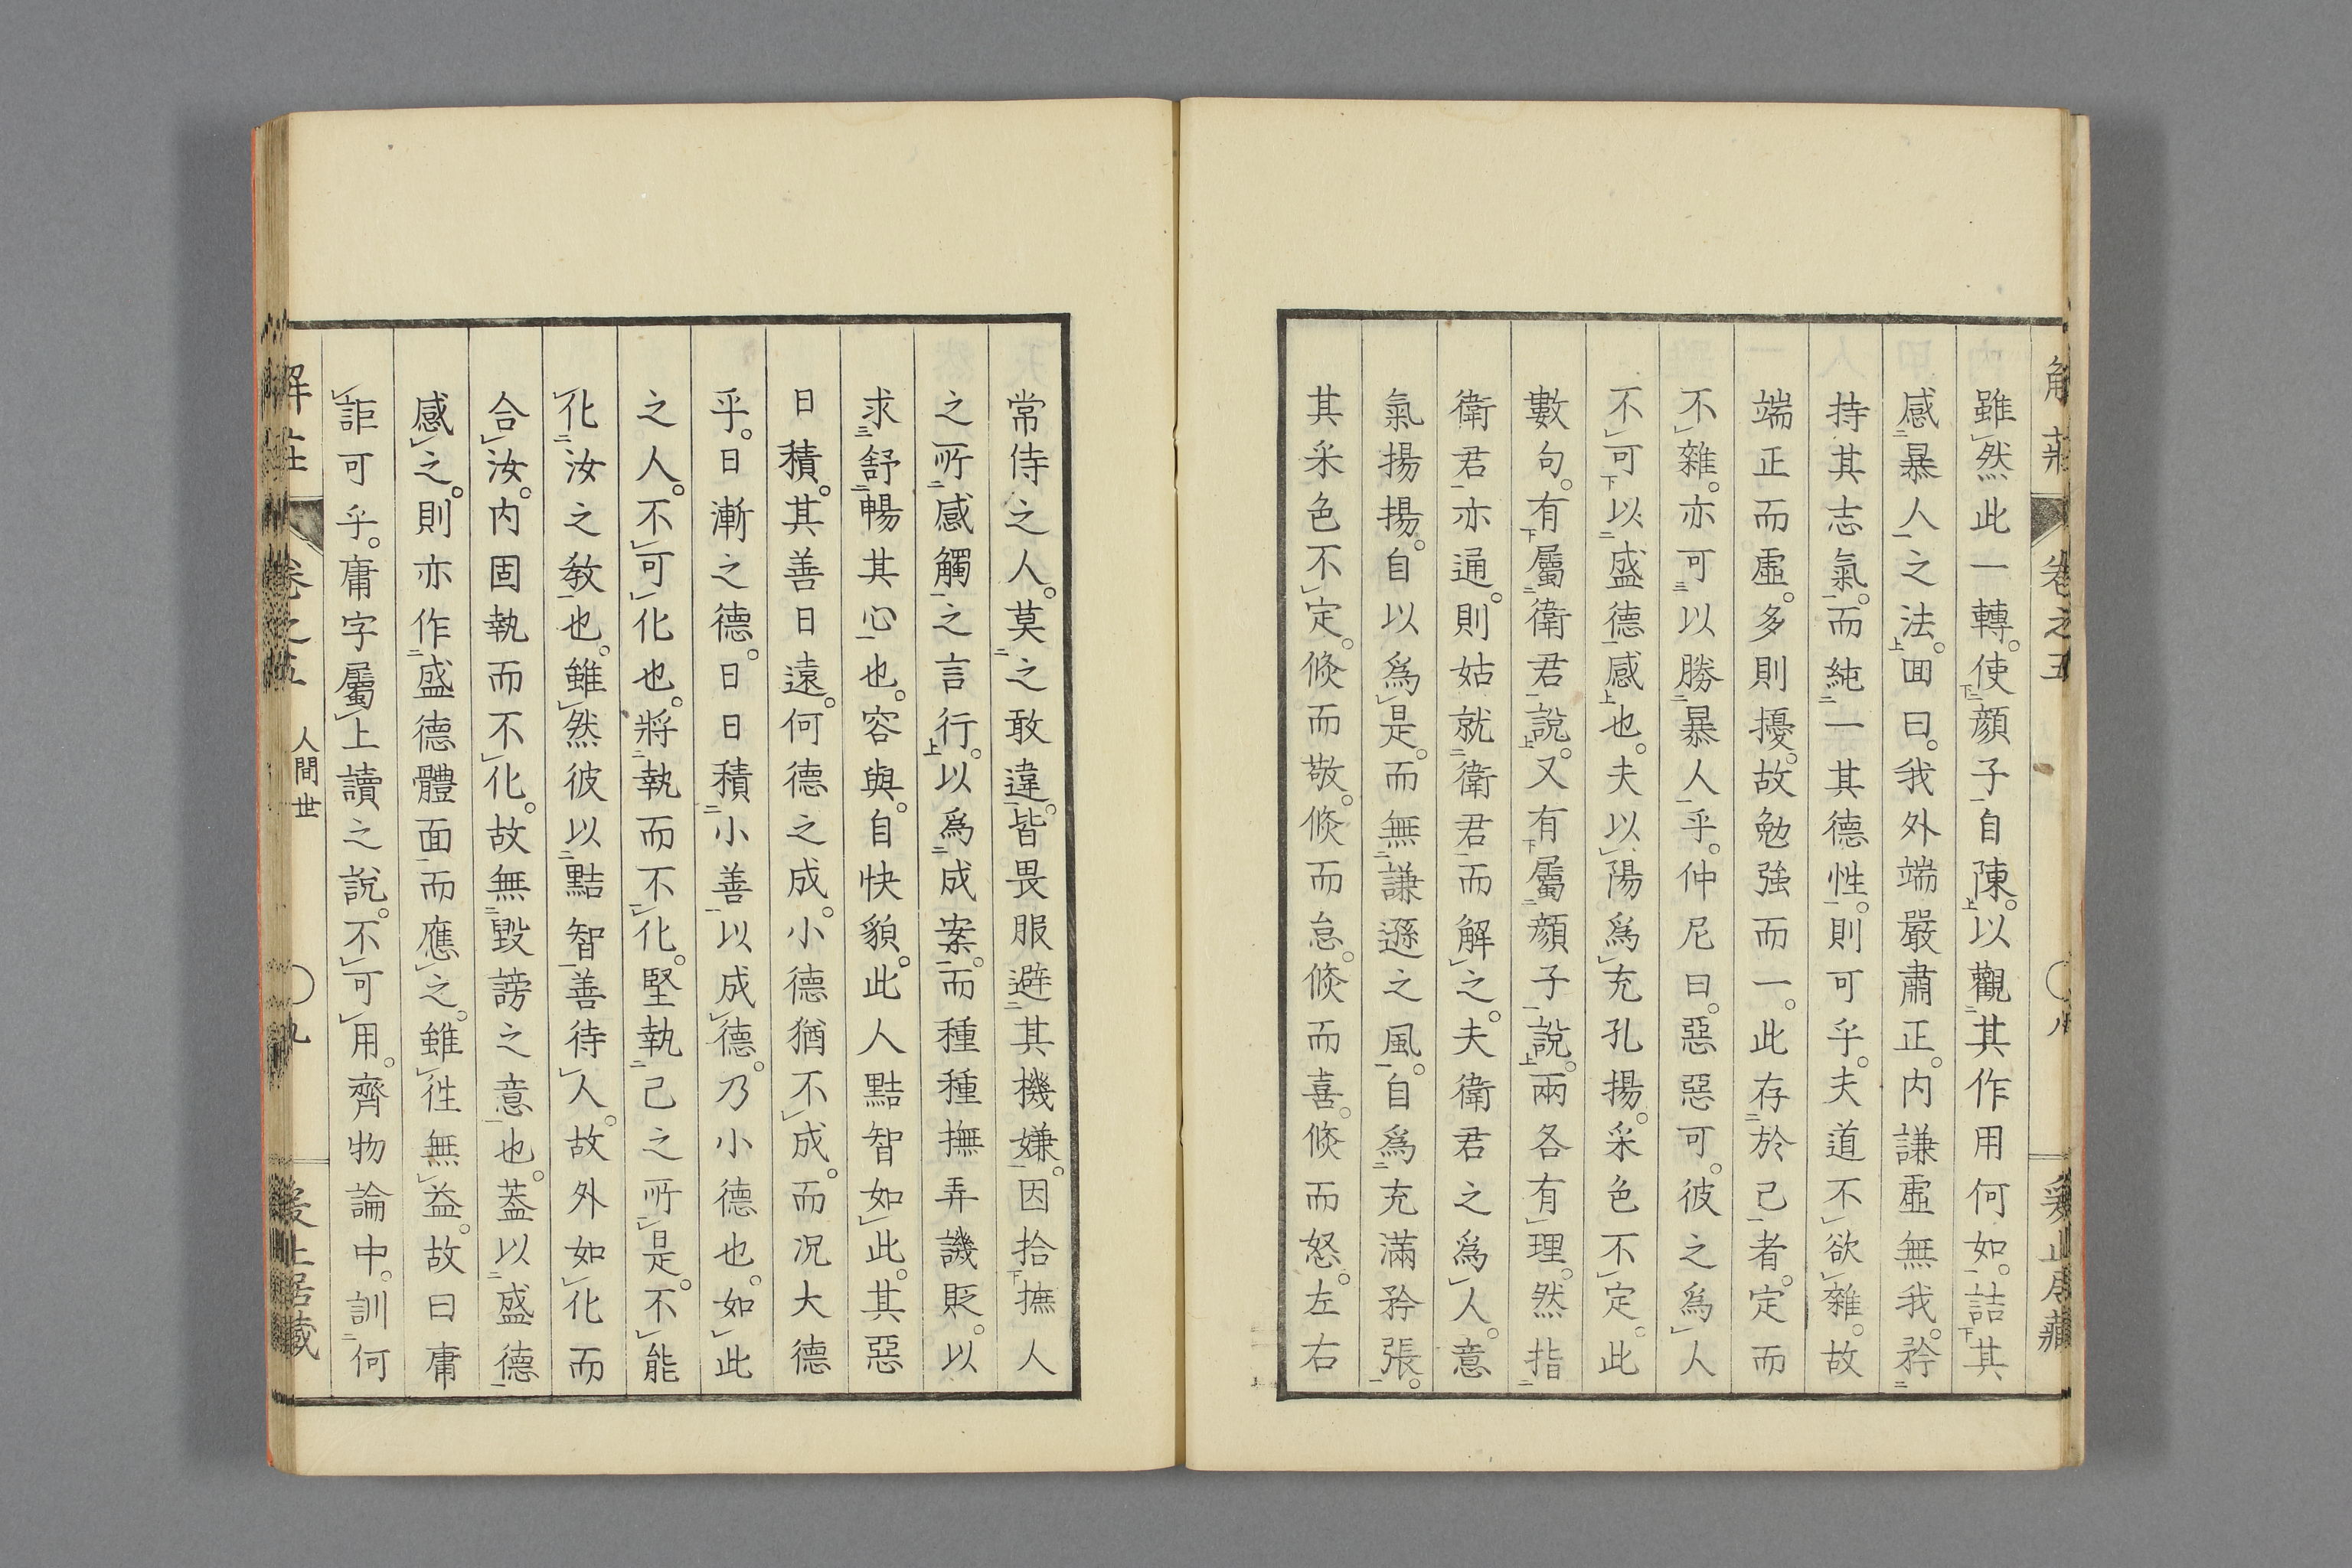 雖然此一轉。使顔子自陳。以觀其作用何如。詰其
感暴人之法。囬曰。我外端嚴肅正。内謙虛無我。矜
持其志氣。而純一其德性。則可乎。夫道不欲雜。故
端正而虛。多則擾。故勉強而一。此存於己者。定而
不雜。亦可以勝暴人乎。仲尼曰。惡惡可。彼之爲人
不可以盛德感也。夫以陽爲充孔揚。采色不定。此
數句。有屬衛君說。又有屬顔子說。兩各有理。然指
衛君亦通。則姑就衛君而解之。夫衛君之爲人。意
氣揚揚。自以爲是。而無謙遜之風。自爲充滿矜張。
其采色不定。倐而敬。倐而怠。倐而喜。倐而怒。左右
常侍之人。莫之敢違。皆畏服避其機嫌。因拾撫人
之所感觸之言行。以爲成案。而種種撫弄譏貶。以
求舒暢其心也。容與。自快貌。此人黠智如此。其惡
日積。其善日遠。何德之成。小德猶不成。而况大德
乎。日漸之德。日日積小善以成德。乃小德也。如此
之人。不可化也。將執而不化。堅執己之所是。不能
化汝之教也。雖然彼以黠智善待人。故外如化而
合汝。内固執而不化。故無毀謗之意也。葢以盛德
感之。則亦作盛德體面而應之。雖徃無益。故曰庸
詎可乎。庸字屬上讀之說。不可用。齊物論中。訓何
解莊
卷之五
人間世
九